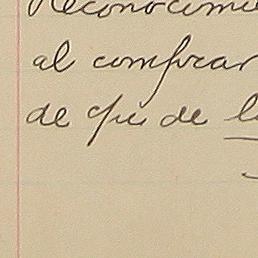 Reconocimie
al comprar
de que de l